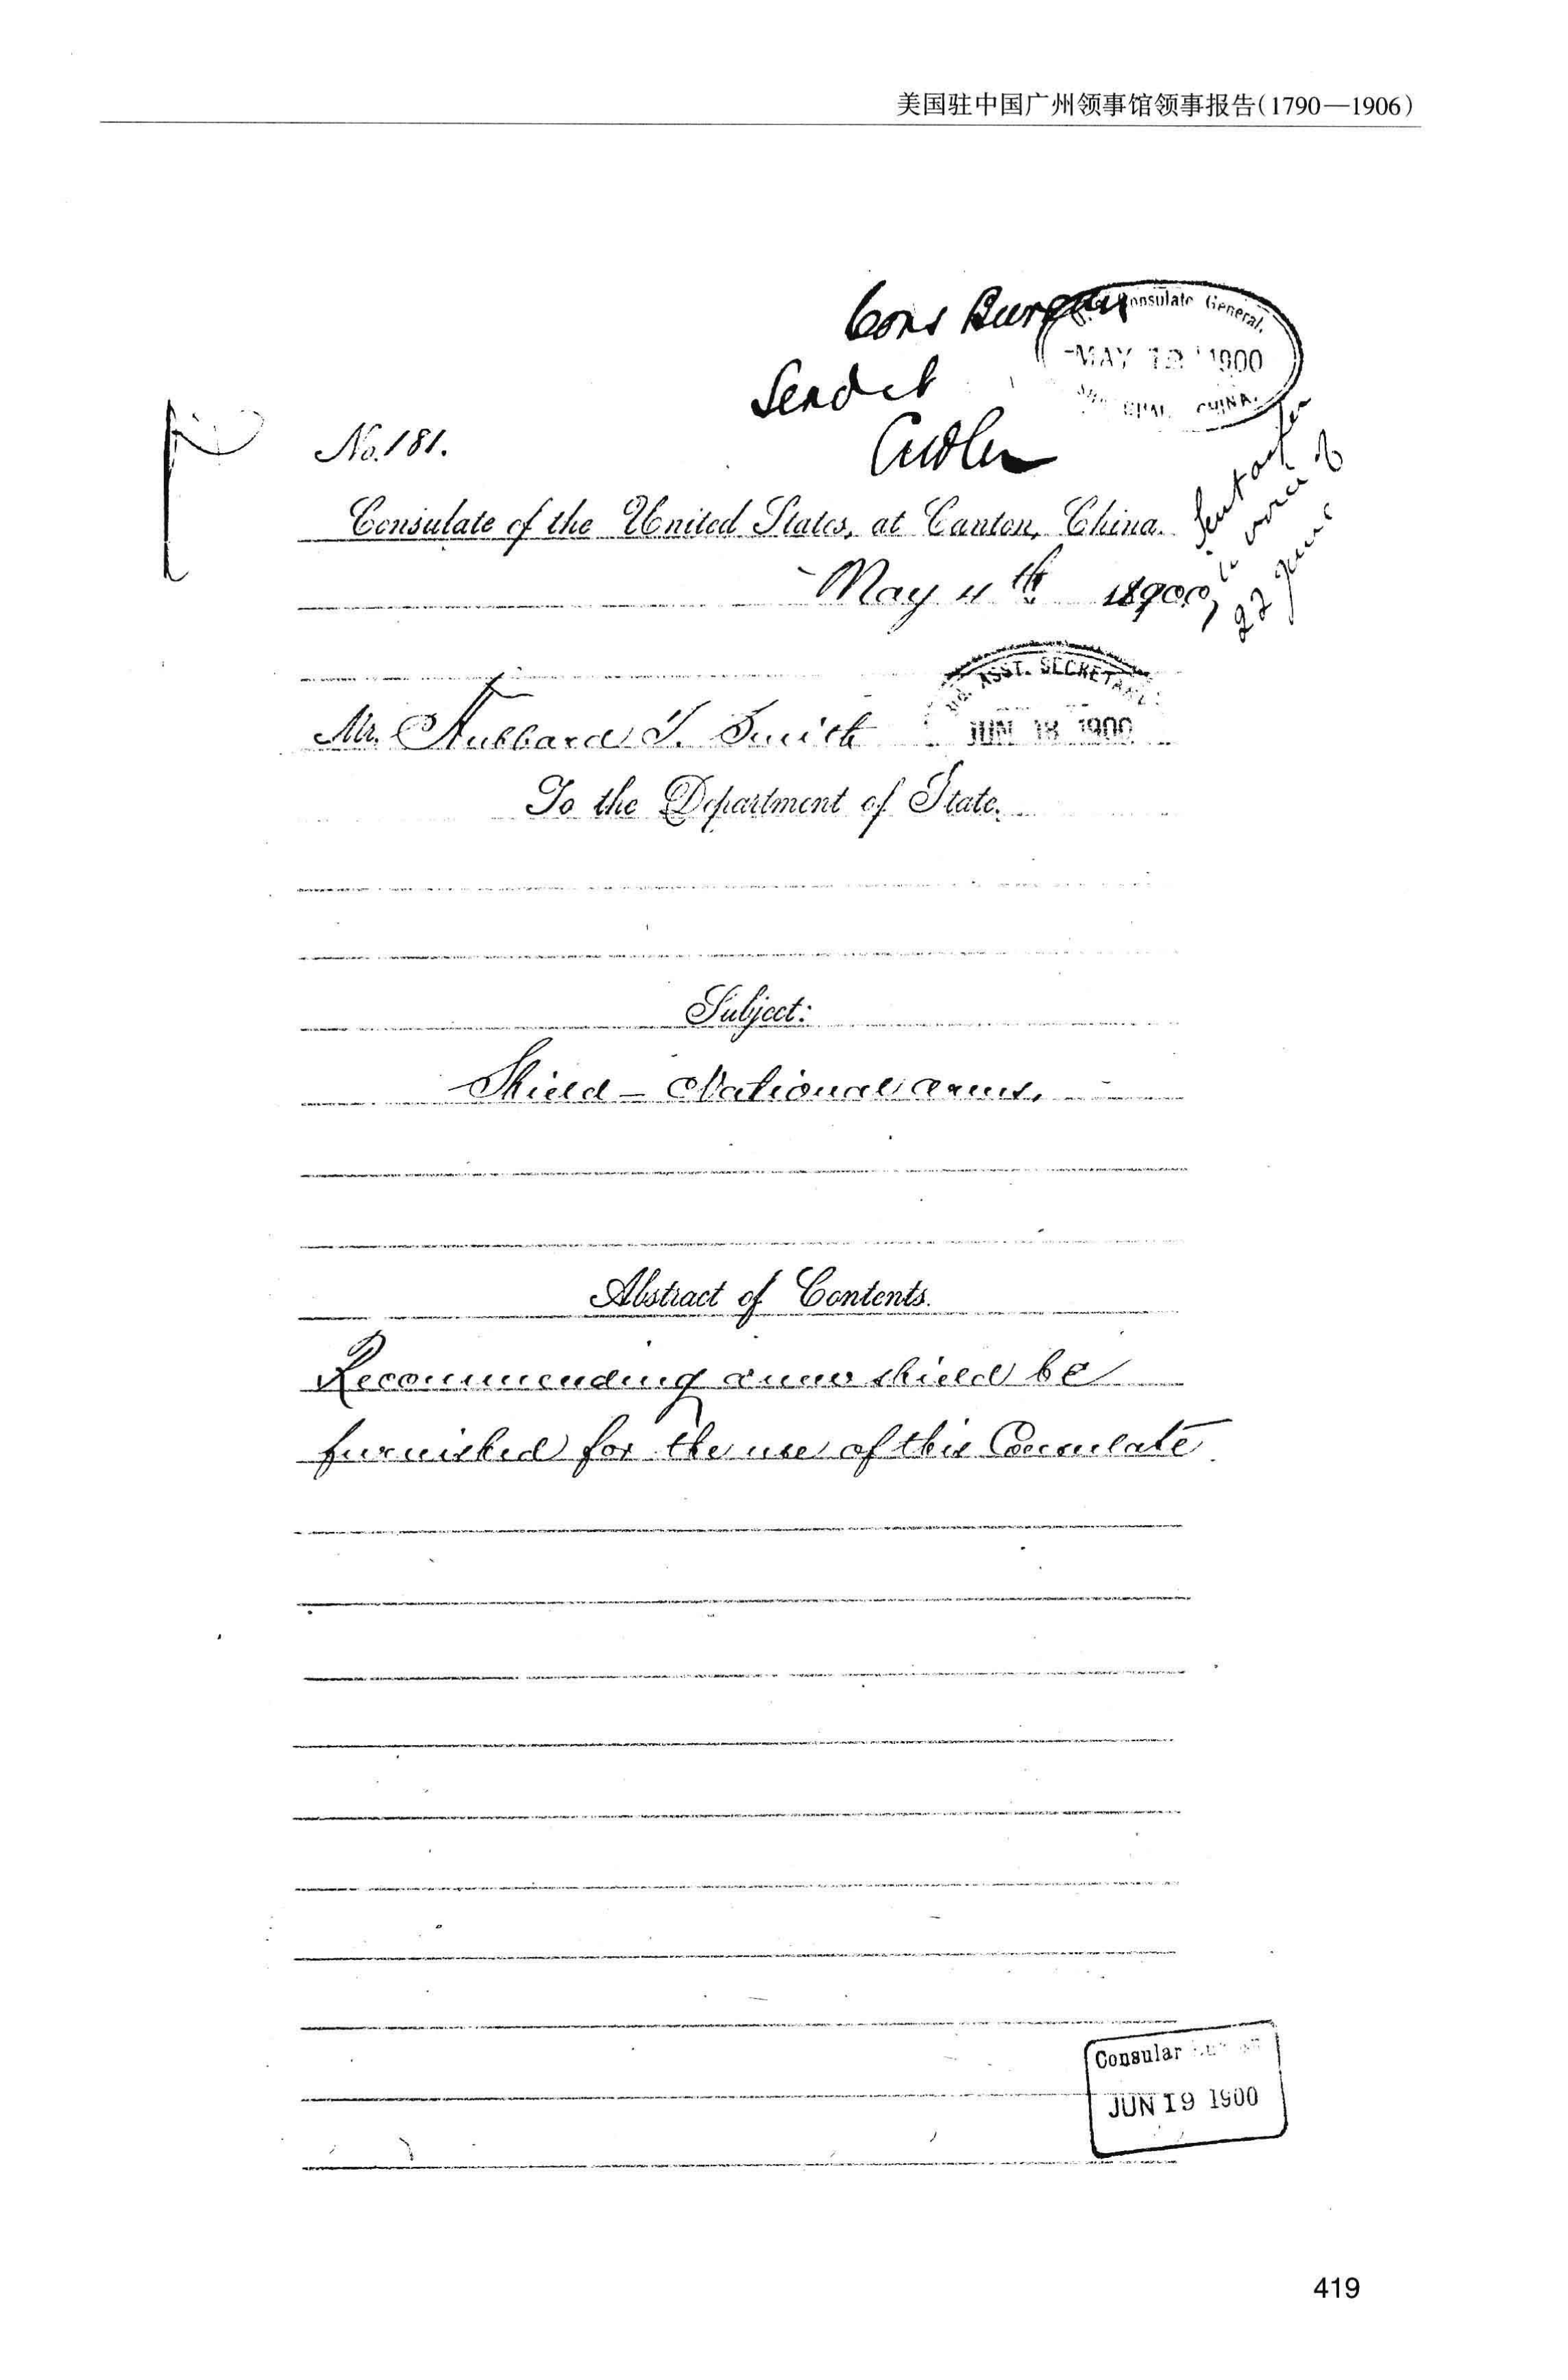 美国驻中国广州领事馆领事报告(1790—1906)
Cons Bureau
Consulate General,
MAY 12 1900
CHINA.
Send it
Cridler
No. 181.
Consulate of the United States, at Canton, China.
May 4th 1900,
22 June
ASST. SECRETARY
JUN 18 1900
Mr. Hubbard T. Smith
To the Department of State.
Subject:
Shield – National arms.
Abstract of Contents.
Recommending a new shield be
furnished for the use of this Consulate.
Consular
JUN 19 1900
419